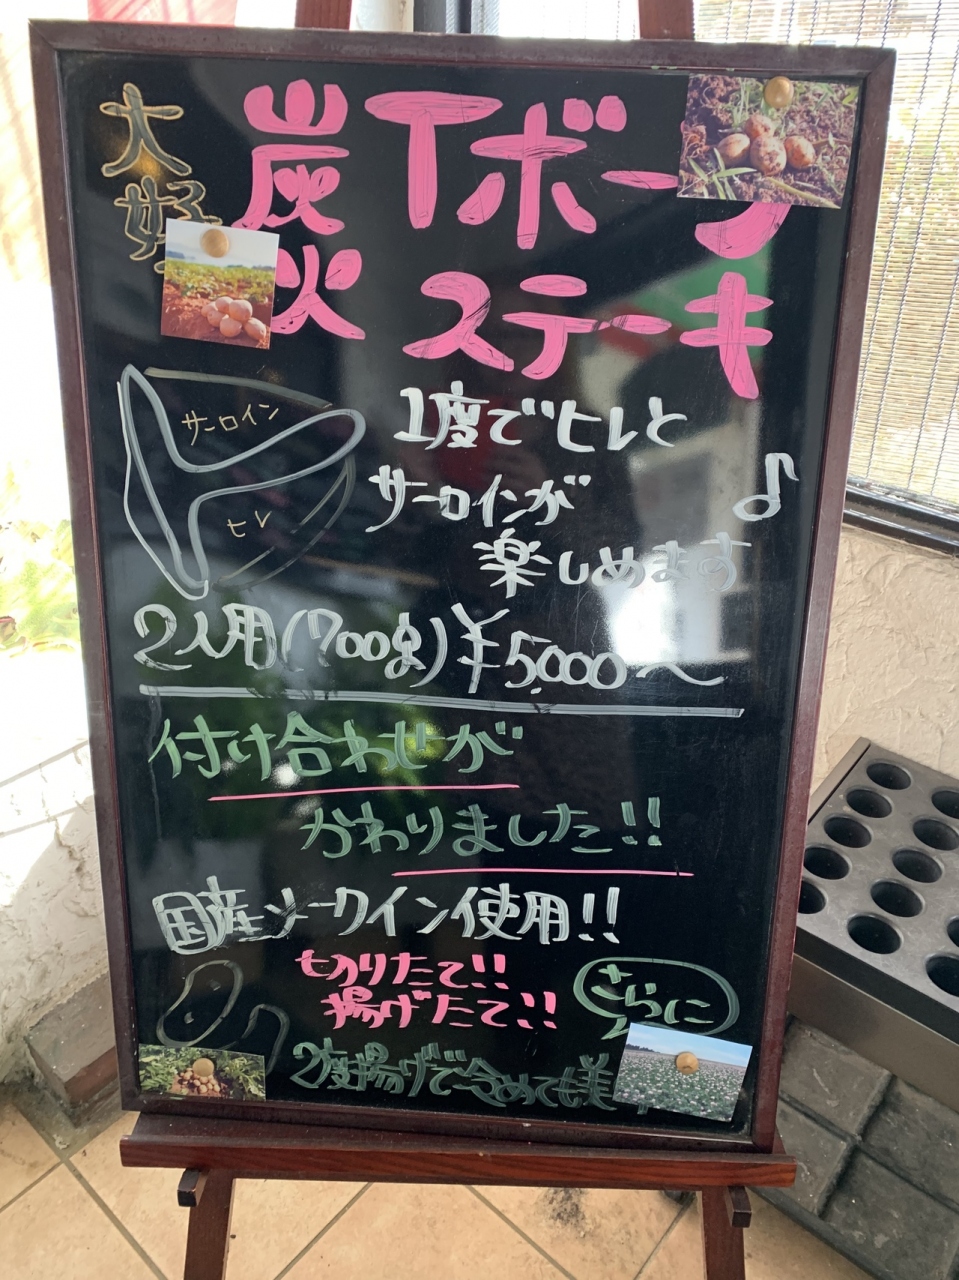 大好
炭火
Tボー
ステーキ
サーロイン
ヒレ
1度でヒレと
サーロインが
楽しめます♪
2人用(700g)¥5,000〜
付け合わせが
かわりました!!
国産メークイン使用!!
切りたて!!
揚げたて!!
さらに
2度揚げで冷めても美